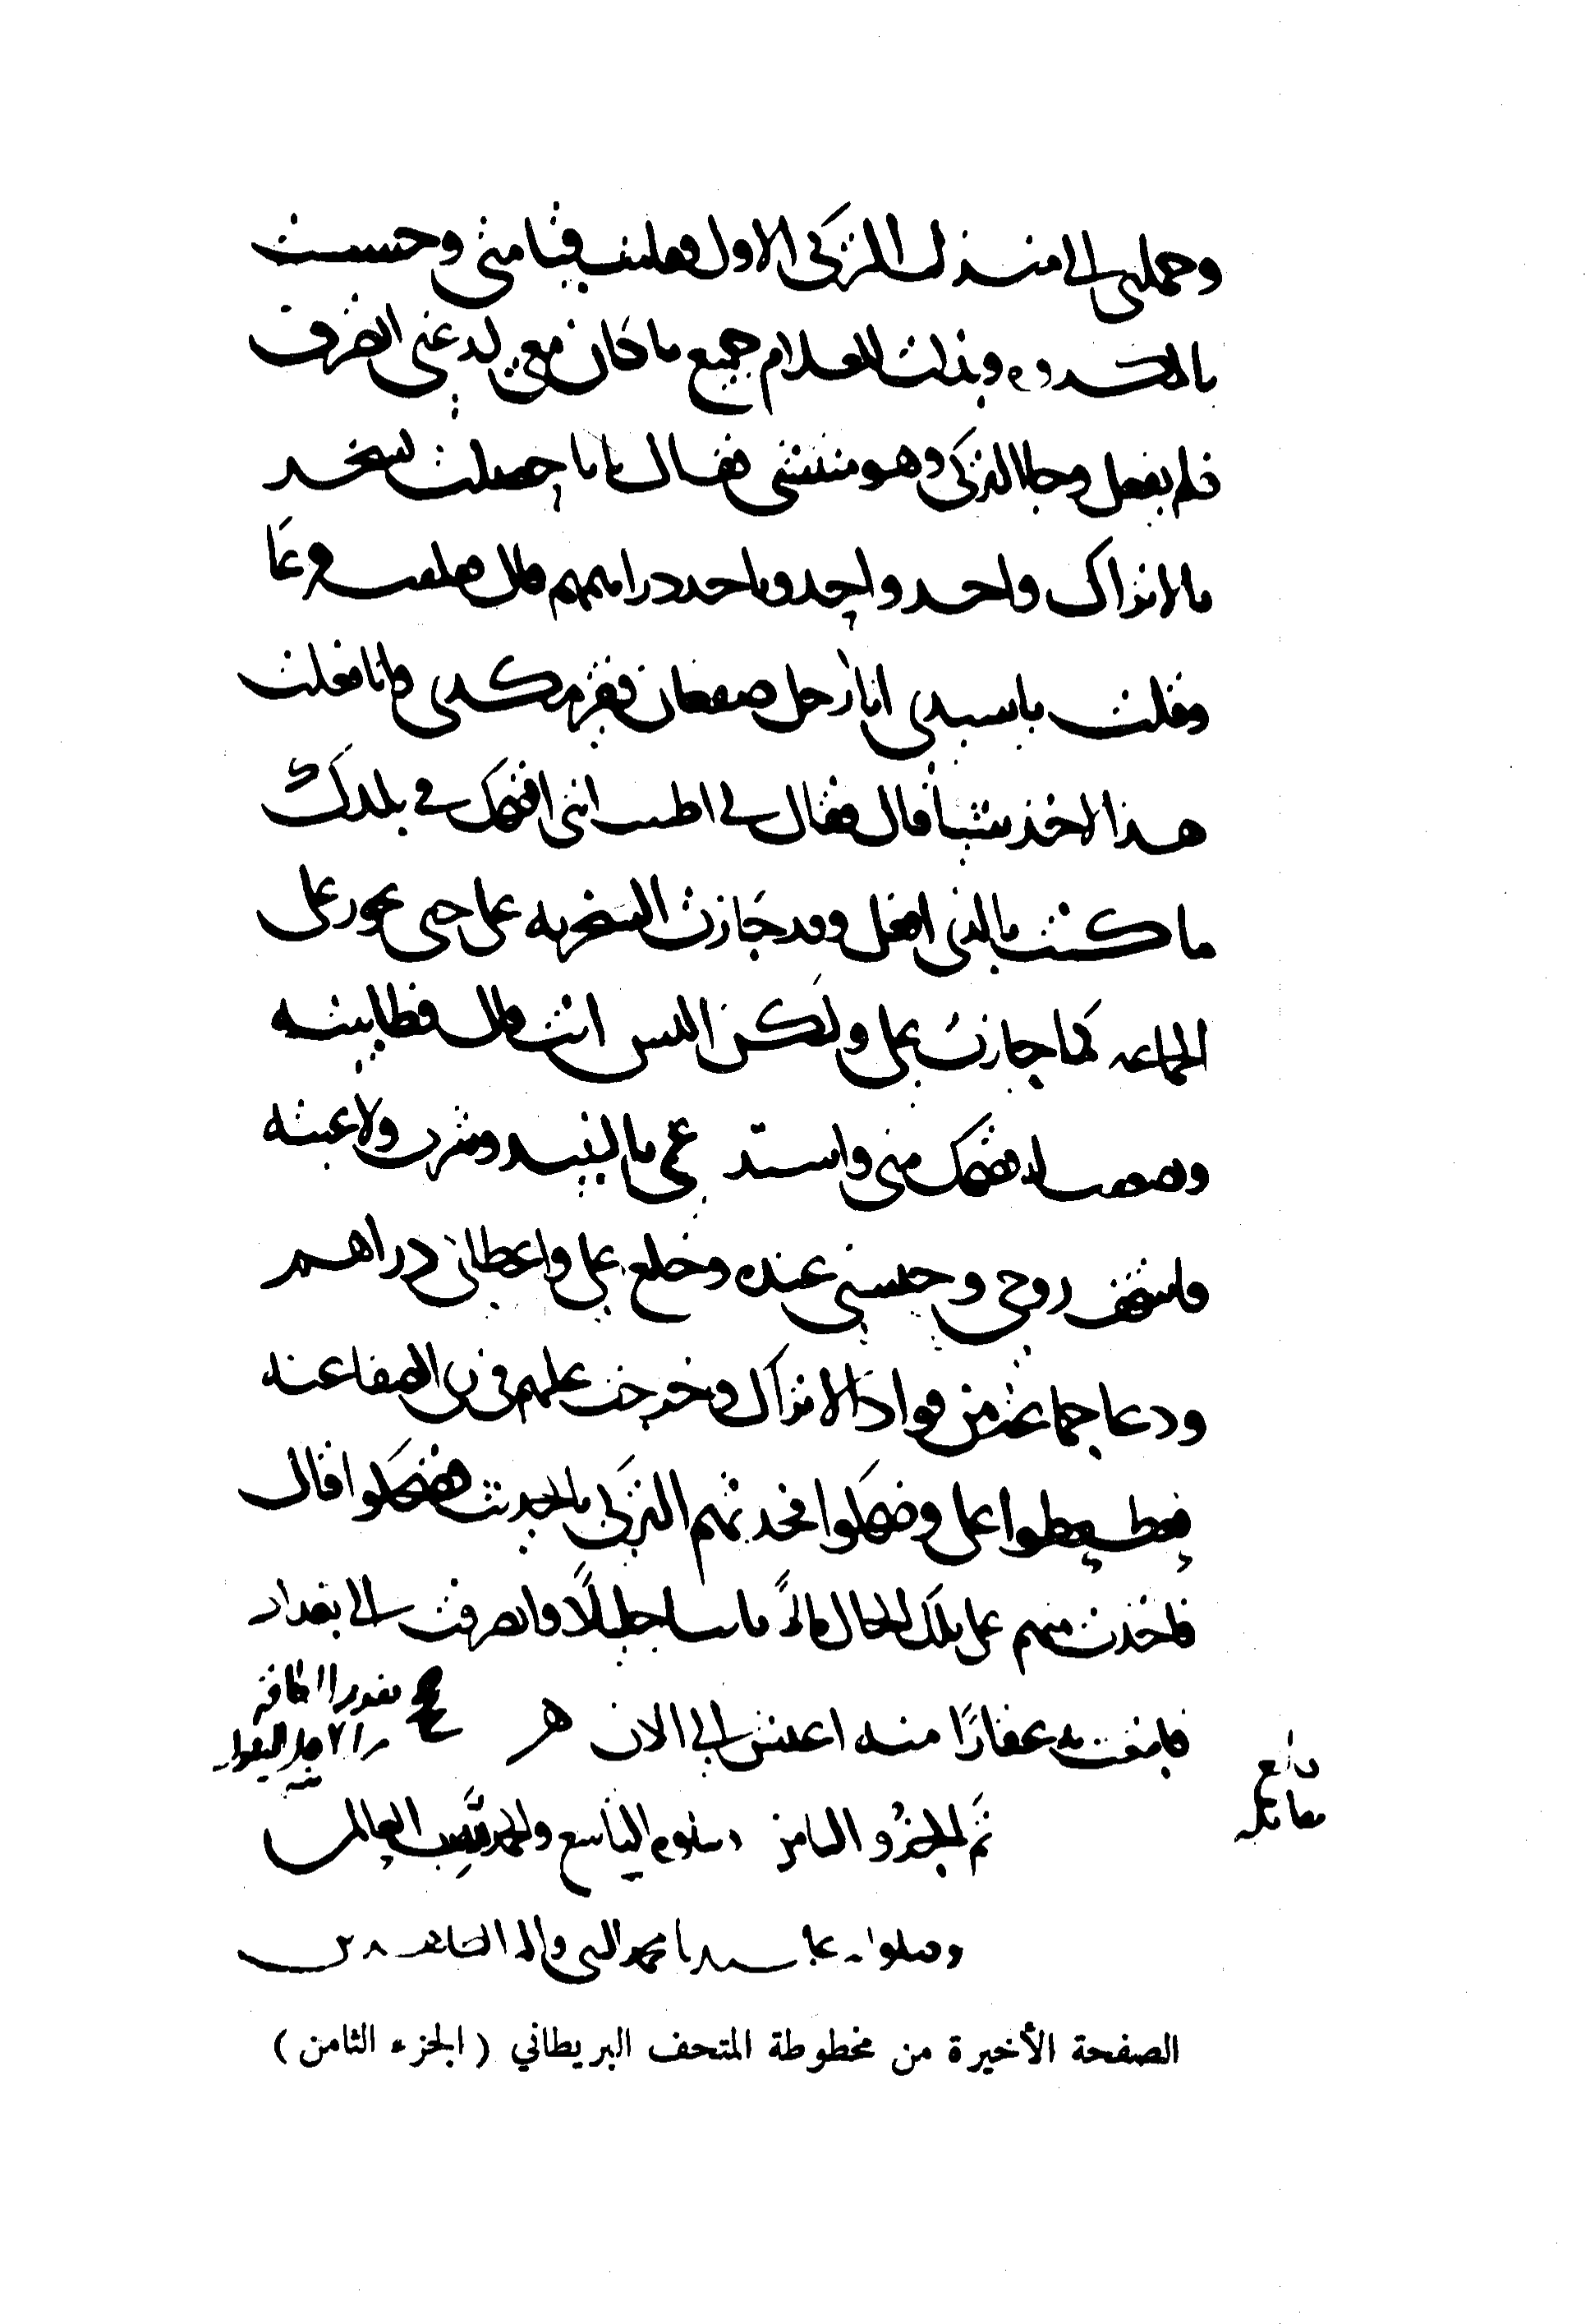 وحملني الى منزل التركي الاول فقامت قيامتي وحسست
بالمكروه وبذلت للغلام جميع ما كان معي ليدعني انصرف
فلم يفعل وجاء التركي وهو منتشي فقال يا با حصلت تسخر
بالاتراك واحد واحد وتاخذ دراهمهم قال
وقلت يا سيدي انا رجل صفعان فقير مكدي وانما فعلت
هذا لاخذ شيئا قال فقال لي اني اضحك في بلدك
ما كنت بالذي افعل وقد جازت السخرية علي حتى يجوز على
الجماعة كما جازت علي ولكن انت قال فطايبته
وصفعت له فضحك مني واستدعى بالنبيذ وشرب ولاعبته
فاستخف روحي وحبسني عنده وخلع علي واعطاني دراهم
ودعا جماعة من قواد الاتراك وخرجت عليهم في زي الصفاعنة
فطيطوا علي وضحكوا فحدثهم التركي بالحديث فضحكوا قال
فاخذت منهم على تلك الحال مالا جليلا وانصرفت الى بغداد
فابتعت به عقارا منه اعيش الى الان هـ
تم الجزو الثامن ويتلوه التاسع والحمد لله رب العالمين
وصلواته على سيدنا محمد النبي واله الطاهرين
الصفحة الأخيرة من مخطوطة المتحف البريطاني ( الجزء الثامن )